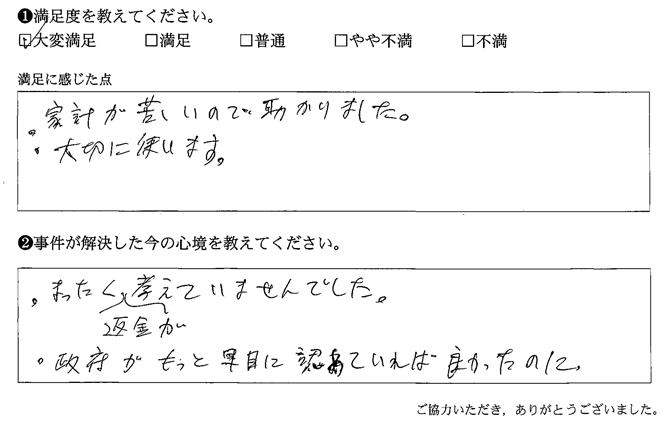 ❶満足度を教えてください。
☑大変満足 □満足 □普通 □やや不満 □不満
満足に感じた点
家計が苦しいので助かりました。
・大切に使います。
❷事件が解決した今の心境を教えてください。
・まったく考えていませんでした。
返金が
・政府がもっと早目に認めていれば良かったのに。
ご協力いただき，ありがとうございました。